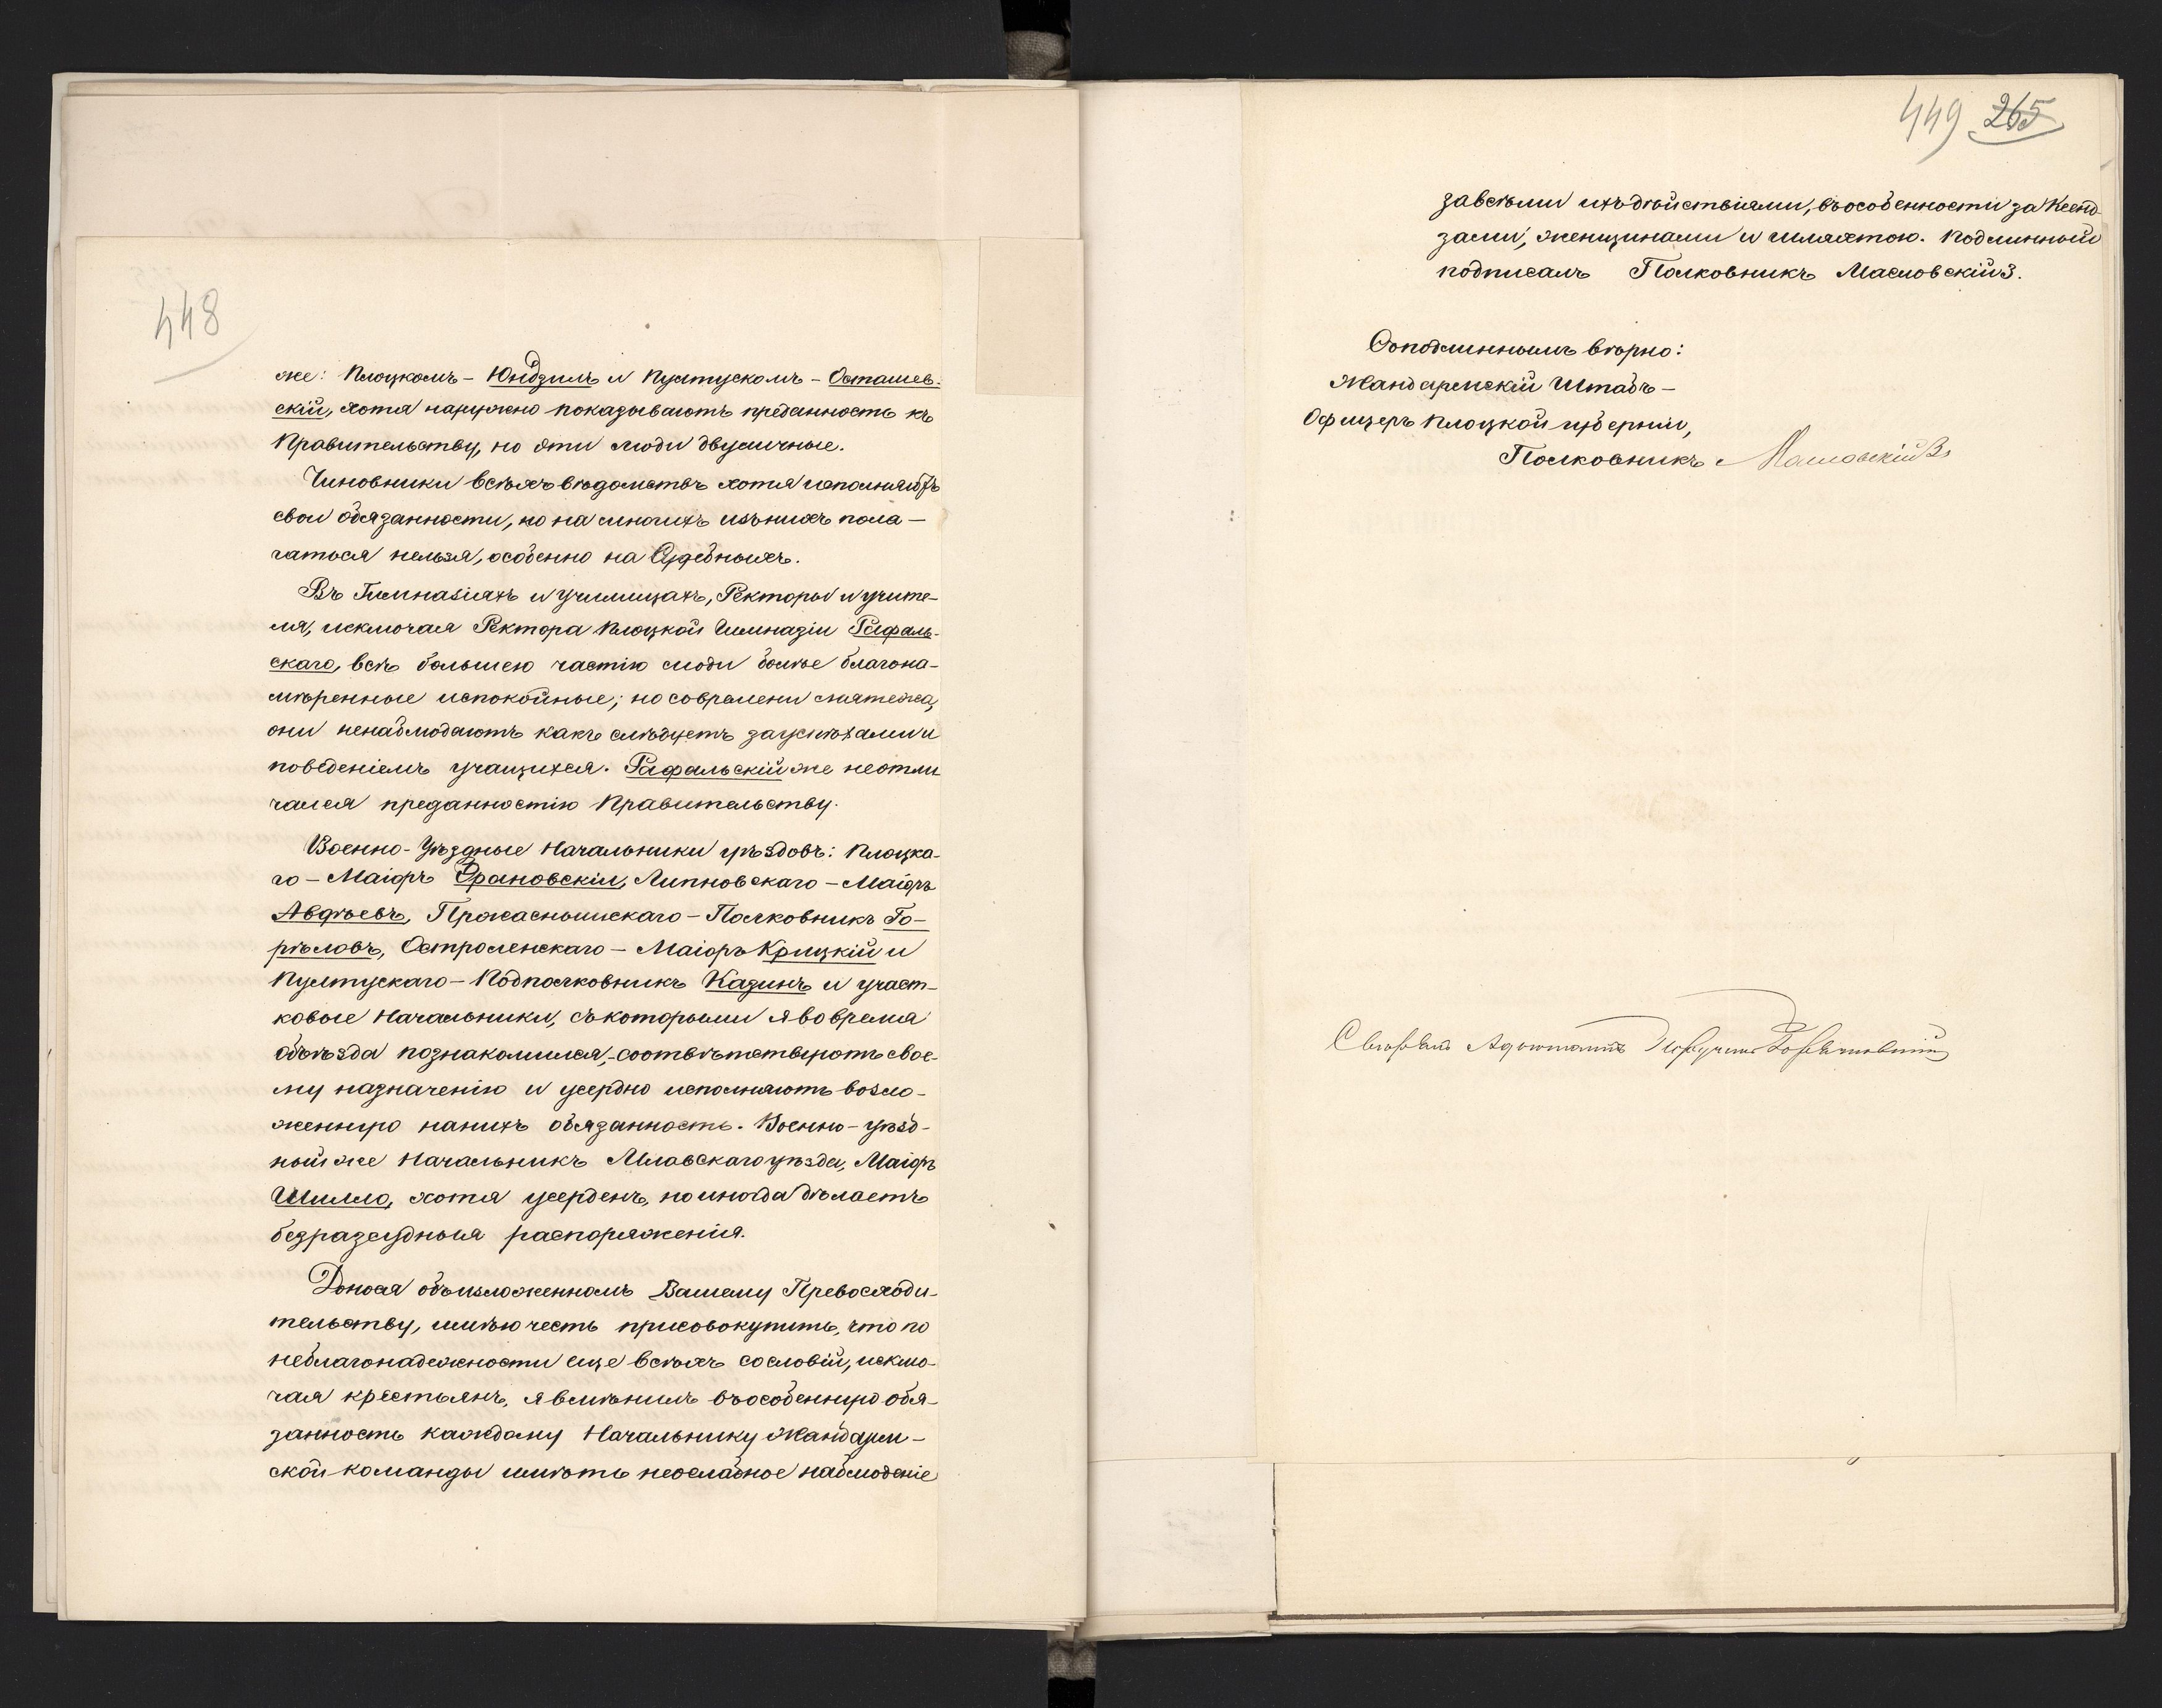 448
же: Плоцкомъ – Юндзилъ и Пултускомъ – Осташев-
скій, хотя наружно показываютъ преданность къ
Правительству, но эти люди двуличные.
Чиновники всѣхъ вѣдомствъ хотя исполняютъ
свои обязанности, но на многихъ изъ нихъ пола-
гаться нельзя, особенно на Судебныхъ.
Въ Гимназіяхъ и училищахъ, Ректоры и учите-
ля, исключая Ректора Плоцкой Гимназіи Рафаль-
скаго, всѣ большею частію люди болѣе благона-
мѣренные и спокойные; но со времени мятежа,
они не наблюдаютъ какъ слѣдуетъ за успѣхами и
поведеніемъ учащихся. Рафальскій же не отли
чался преданностію Правительству.
Военно-Уѣздные Начальники уѣздовъ: Плоцка-
го – Маіоръ Драновскій, Липновскаго – Маіоръ
Авдѣевъ, Прасныш­скаго – Полковникъ Го-
рѣловъ, Остроленскаго – Маіоръ Крицкій и
Пултускаго – Подполковникъ Казинъ и участ-
ковые Начальники, съ которыми я во время
объѣзда познакомился, – соотвѣтствуютъ свое-
му назначенію и усердно исполняютъ возло-
женную на нихъ обязанность. Военно-уѣзд-
ный же Начальникъ Млавскаго уѣзда, Маіоръ
Шилло, хотя усерденъ, но иногда дѣлаетъ
безразсудныя распоряженія.
Донося объ изложенномъ Вашему Превосходи-
тельству, имѣю честь присовокупить, что по
неблагонадежности еще всѣхъ сословій, исклю-
чая крестьянъ, я вмѣнилъ въ особенную обя-
занность каждому Начальнику Жандарм-
ской команды имѣть неослабное наблюденіе
449 265
за всѣми ихъ дѣйствіями, въ особенности за Ксенд-
зами, женщинами и шляхтою. Подлинный
подписалъ Полковникъ Масловскій 3.
Съ подлиннымъ вѣрно:
Жандармскій Штабъ-
Офицеръ Плоцкой губерніи,
Полковникъ Масловскій 3.
Свѣрялъ Адъютантъ Поручикъ